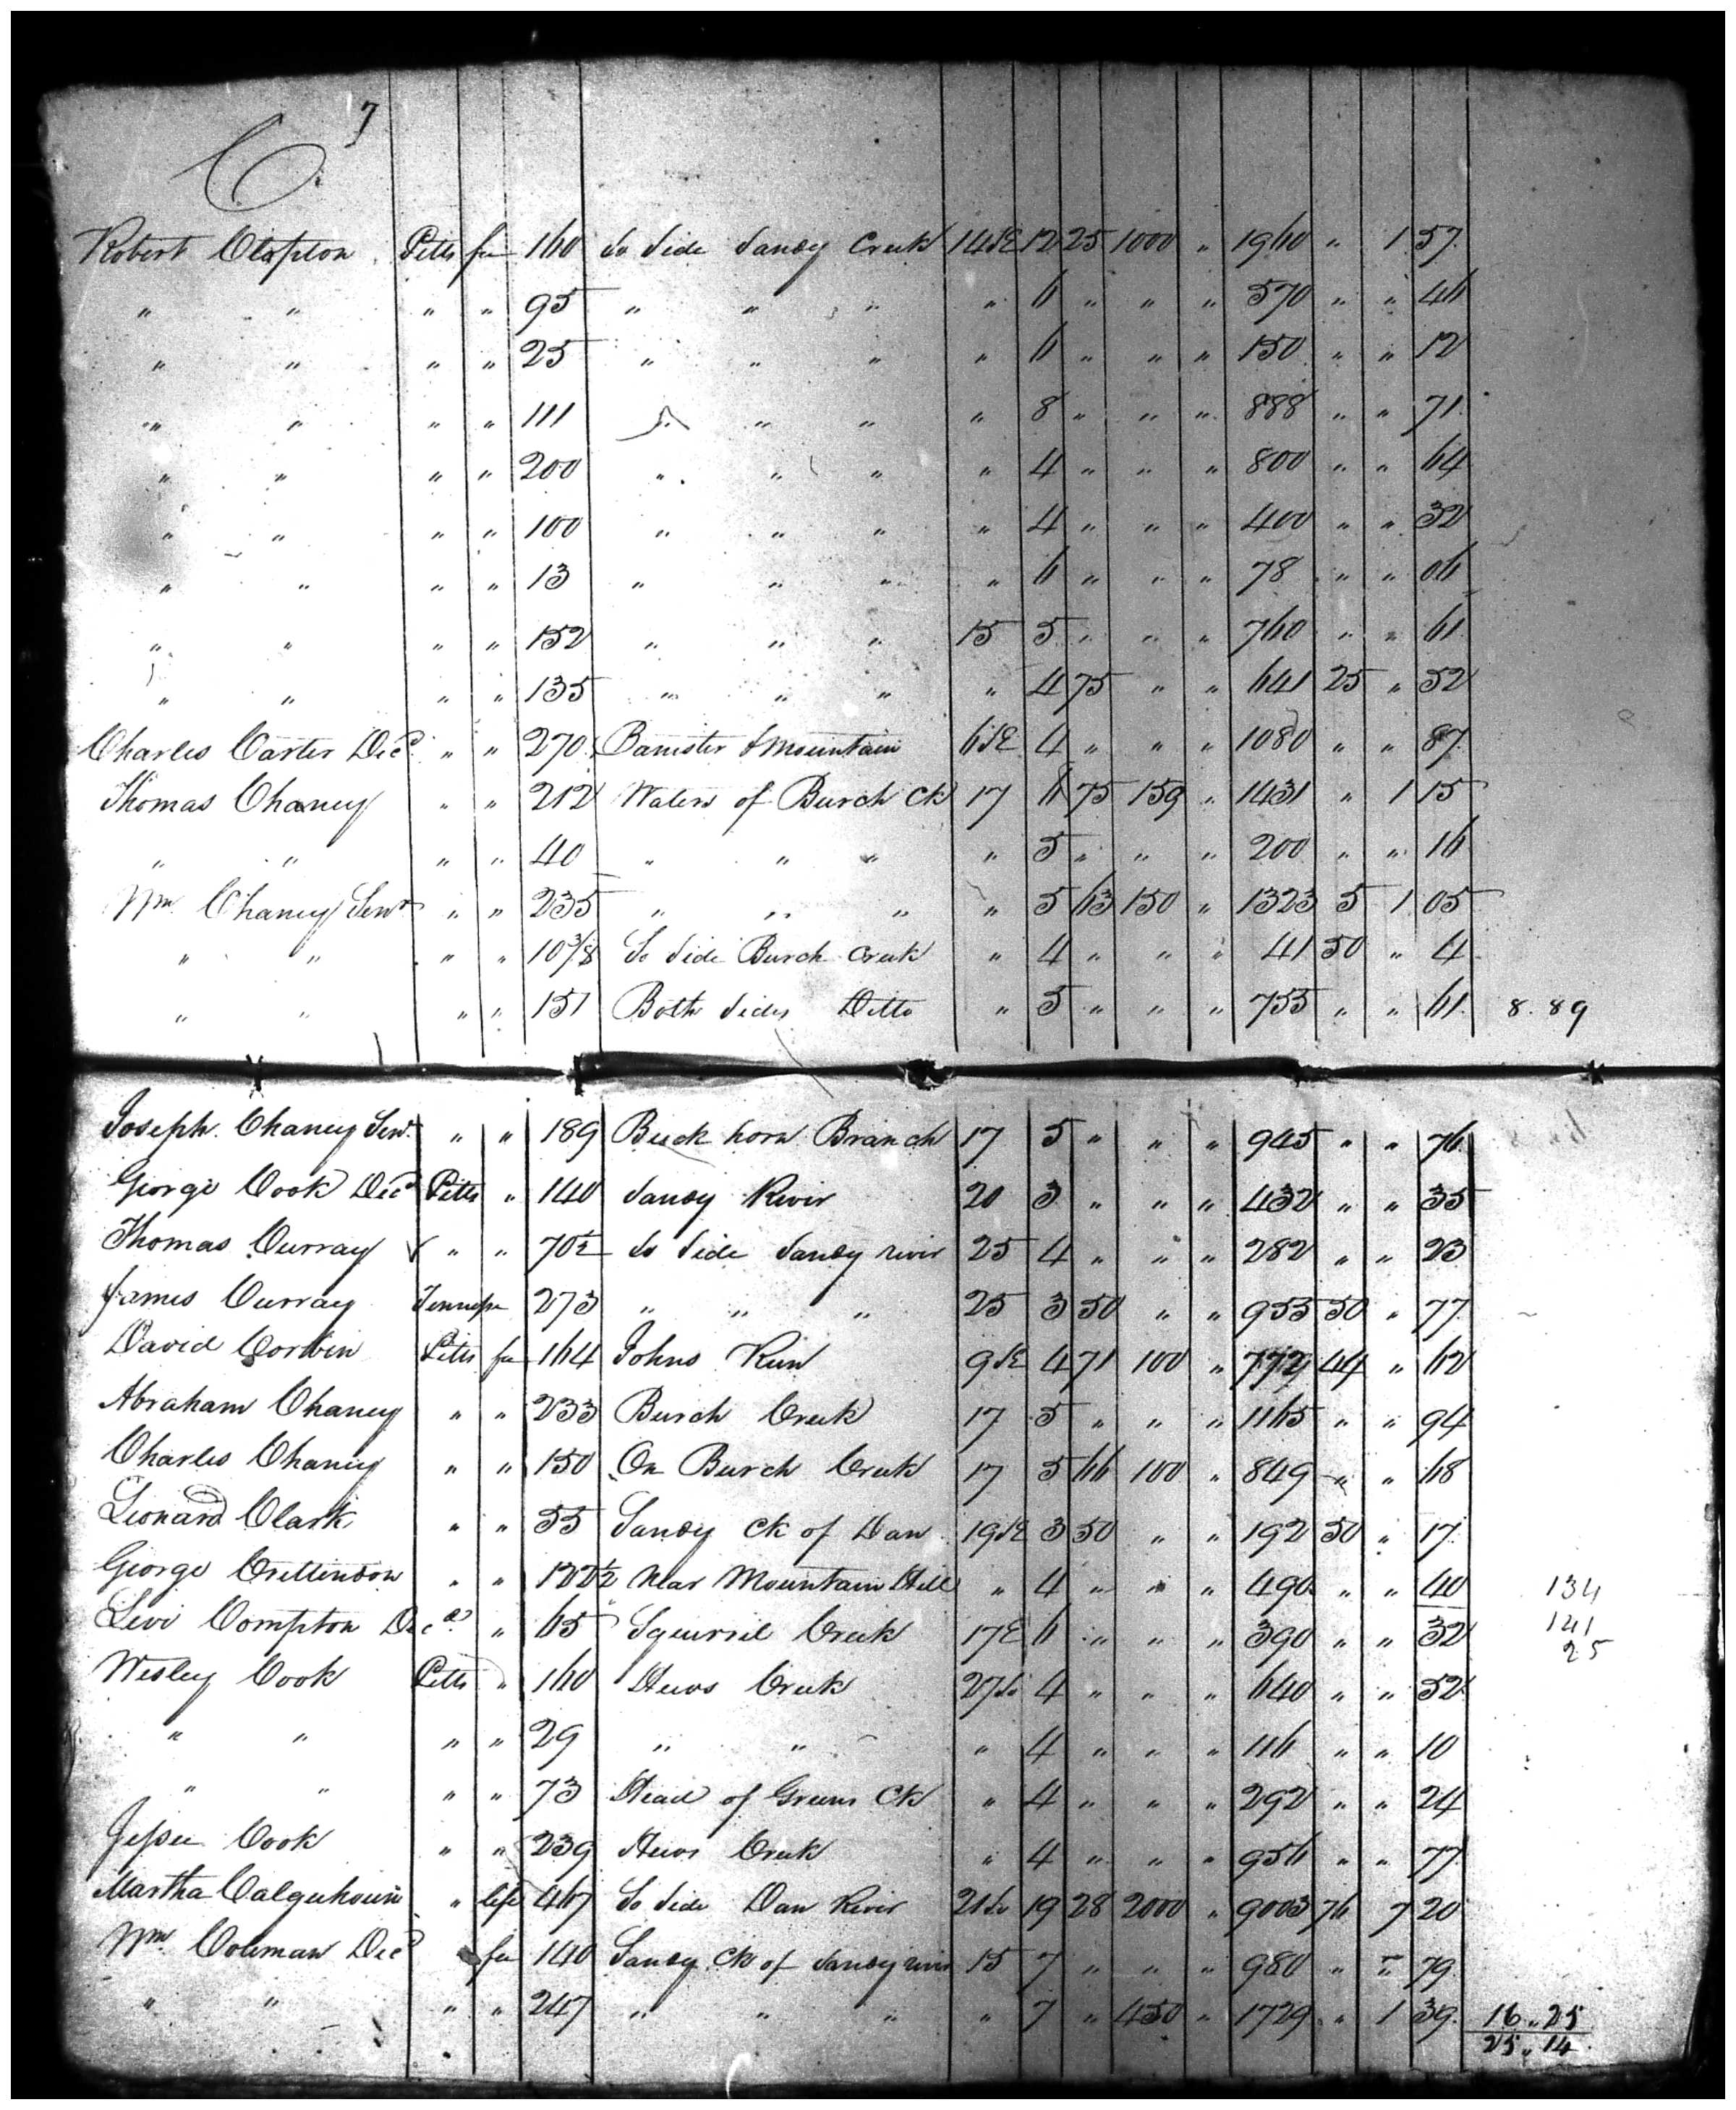 7
C
Robert Clopton Pitts fee 160 So Side Sandy Creek 14 SE 12 25 1000 " 1960 " 1 57
" " " " 95 " " " " 6 " " " 570 " " 46
" " " " 25 " " " " 6 " " " 150 " " 12
" " " " 111 " " " " 8 " " " 888 " " 71
" " " " 200 " " " " 4 " " " 800 " " 64
" " " " 100 " " " " 4 " " " 400 " " 32
" " " " 13 " " " " 6 " " " 78 " " 06
" " " " 152 " " " 15 5 " " " 760 " " 61
" " " " 135 " " " " 4 75 " " 641 25 " 52
Charles Carter Decd " " 270 Banister & Mountain 6 SE 4 " " " 1080 " " 87
Thomas Chaney " " 212 Waters of Burch Ck 17 6 75 159 " 1431 " 1 15
" " " " 40 " " " " 5 " " " 200 " " 16
Wm Chaney Senr " " 235 " " " " 5 63 150 " 1323 5 1 05
" " " " 10 3/8 So Side Burch Creek " 4 " " " 41 50 " 4
" " " " 151 Both Sides Ditto " 5 " " " 755 " " 61 8.89
Joseph Chaney Senr " " 189 Buck horn Branch 17 5 " " " 945 " " 76
George Cook Decd Pitts " 140 Sandy River 20 3 " " " 432 " " 35
Thomas Curray " " 70 1/2 So Side Sandy river 25 4 " " " 282 " " 23
James Curray Tennessee 273 " " " 25 3 50 " " 955 50 " 77
David Corbin Pitts fee 164 Johns Run 9 SE 4 71 100 " 772 44 " 62
Abraham Chaney " " 233 Burch Creek 17 5 " " " 1165 " " 94
Charles Chaney " " 150 On Burch Creek 17 5 66 100 " 849 " " 68
Leonard Clark " " 55 Sandy Ck of Dan 19 SE 3 50 " " 192 50 " 17
George Crittendon " " 122 1/2 Near Mountain Hill " 4 " " " 490 " " 40 134
Levi Compton Decd " 65 Squirrel Creek 17 E 6 " " " 390 " " 32 141
25
Wesley Cook Pitts " 160 Hews Creek 27 So 4 " " " 640 " " 52
" " " " 29 " " " 4 " " " 116 " " 10
" " " " 73 Head of Greens Ck " 4 " " " 292 " " 24
Jessee Cook " " 239 Hews Creek " 4 " " " 956 " " 77
Martha Calquhoun " life 467 So Side Dan River 21 So 19 28 2000 " 9003 76 7 20
Wm Coleman Decd fee 140 Sandy Ck of Sandy river 15 7 " " " 980 " " 79
" " " " 247 " " " " 7 " 450 " 1729 " 1 39 16.25
25.14